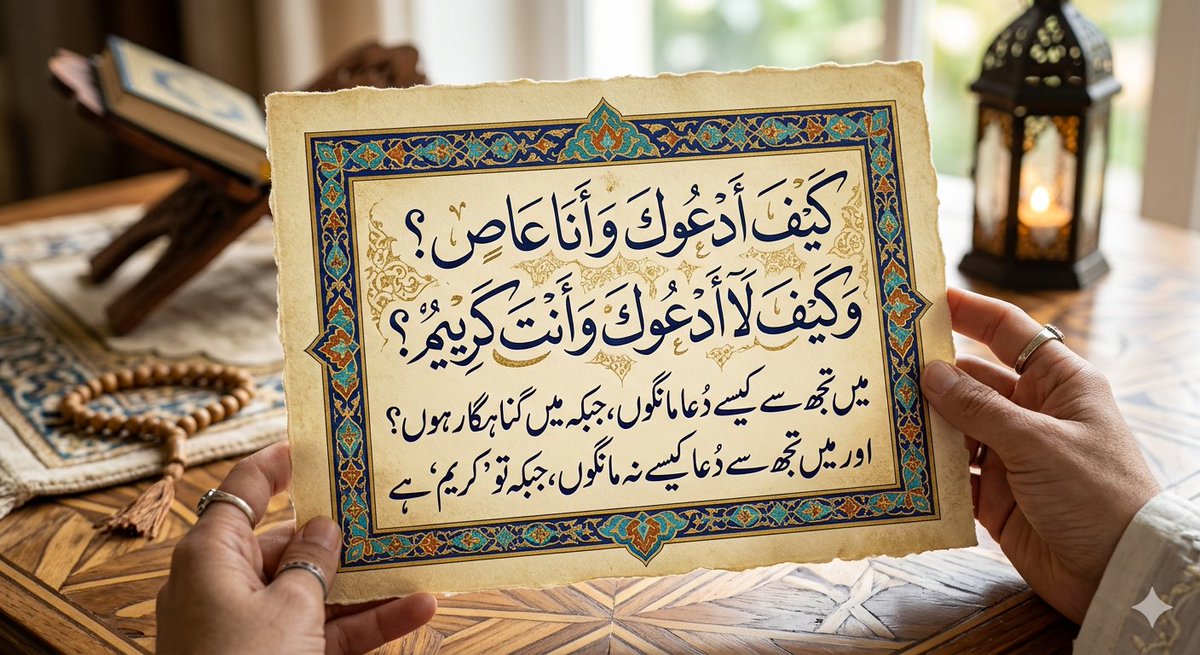 كَيْفَ أَدْعُوكَ وَأَنَا عَاصٍ؟
وَكَيْفَ لَا أَدْعُوكَ وَأَنْتَ كَرِيمٌ؟
میں تجھ سے کیسے دُعا مانگوں، جبکہ میں گناہگار ہوں؟
اور میں تجھ سے دُعا کیسے نہ مانگوں، جبکہ تو ’کریم‘ ہے